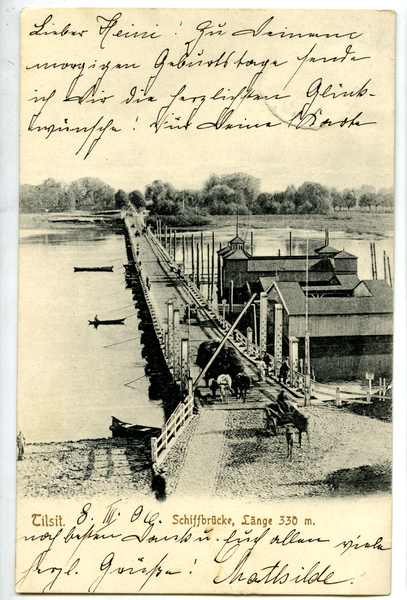 Lieber Heini! Zu Deinem
morgigen Geburtstage sende
ich Dir die herzlichsten Glück-
wünsche! Für Deine Karte
Tilsit. 8. III. 06. Schiffbrücke, Länge 330 m.
noch besten Dank u. Euch allen viele
herzl. Grüße! Mathilde.